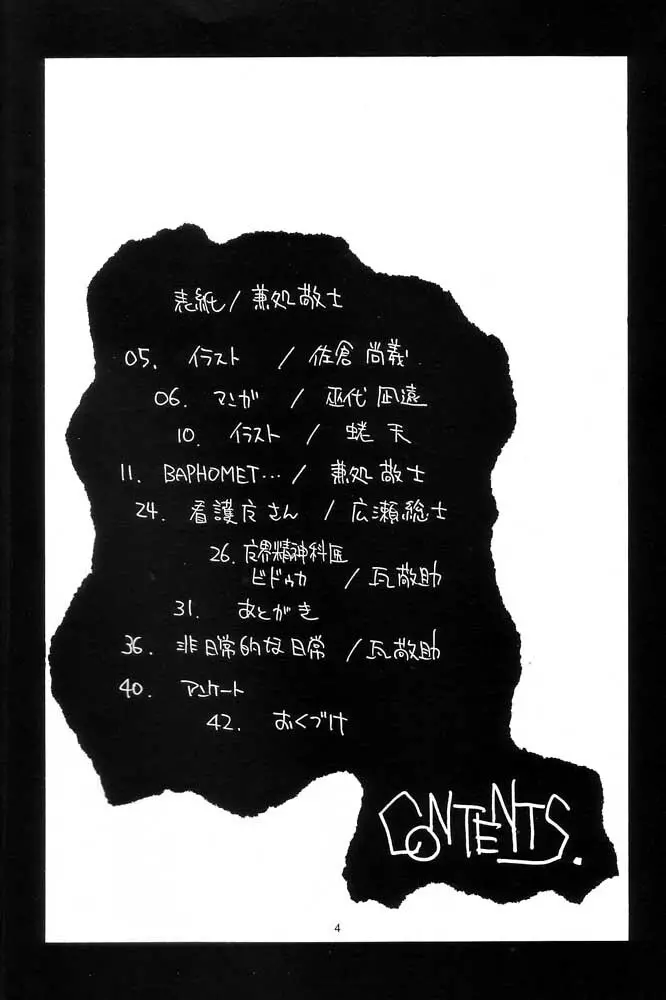 表紙 / 兼処敬士
05. イラスト / 佐倉尚義
06. マンガ / 巫代凪遠
10. イラスト / 蜷天
11. BAPHOMET… / 兼処敬士
24. 看護庋さん / 広瀬総士
26. 魔界精神科医
ビドゥカ / 瓦敬助
31. あとがき
36. 非日常的な日常 / 瓦敬助
40. アンケート
42. おくづけ
CONTENTS.
4